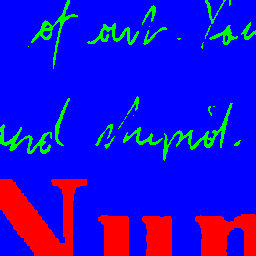 of out. You
and stupid.
Num